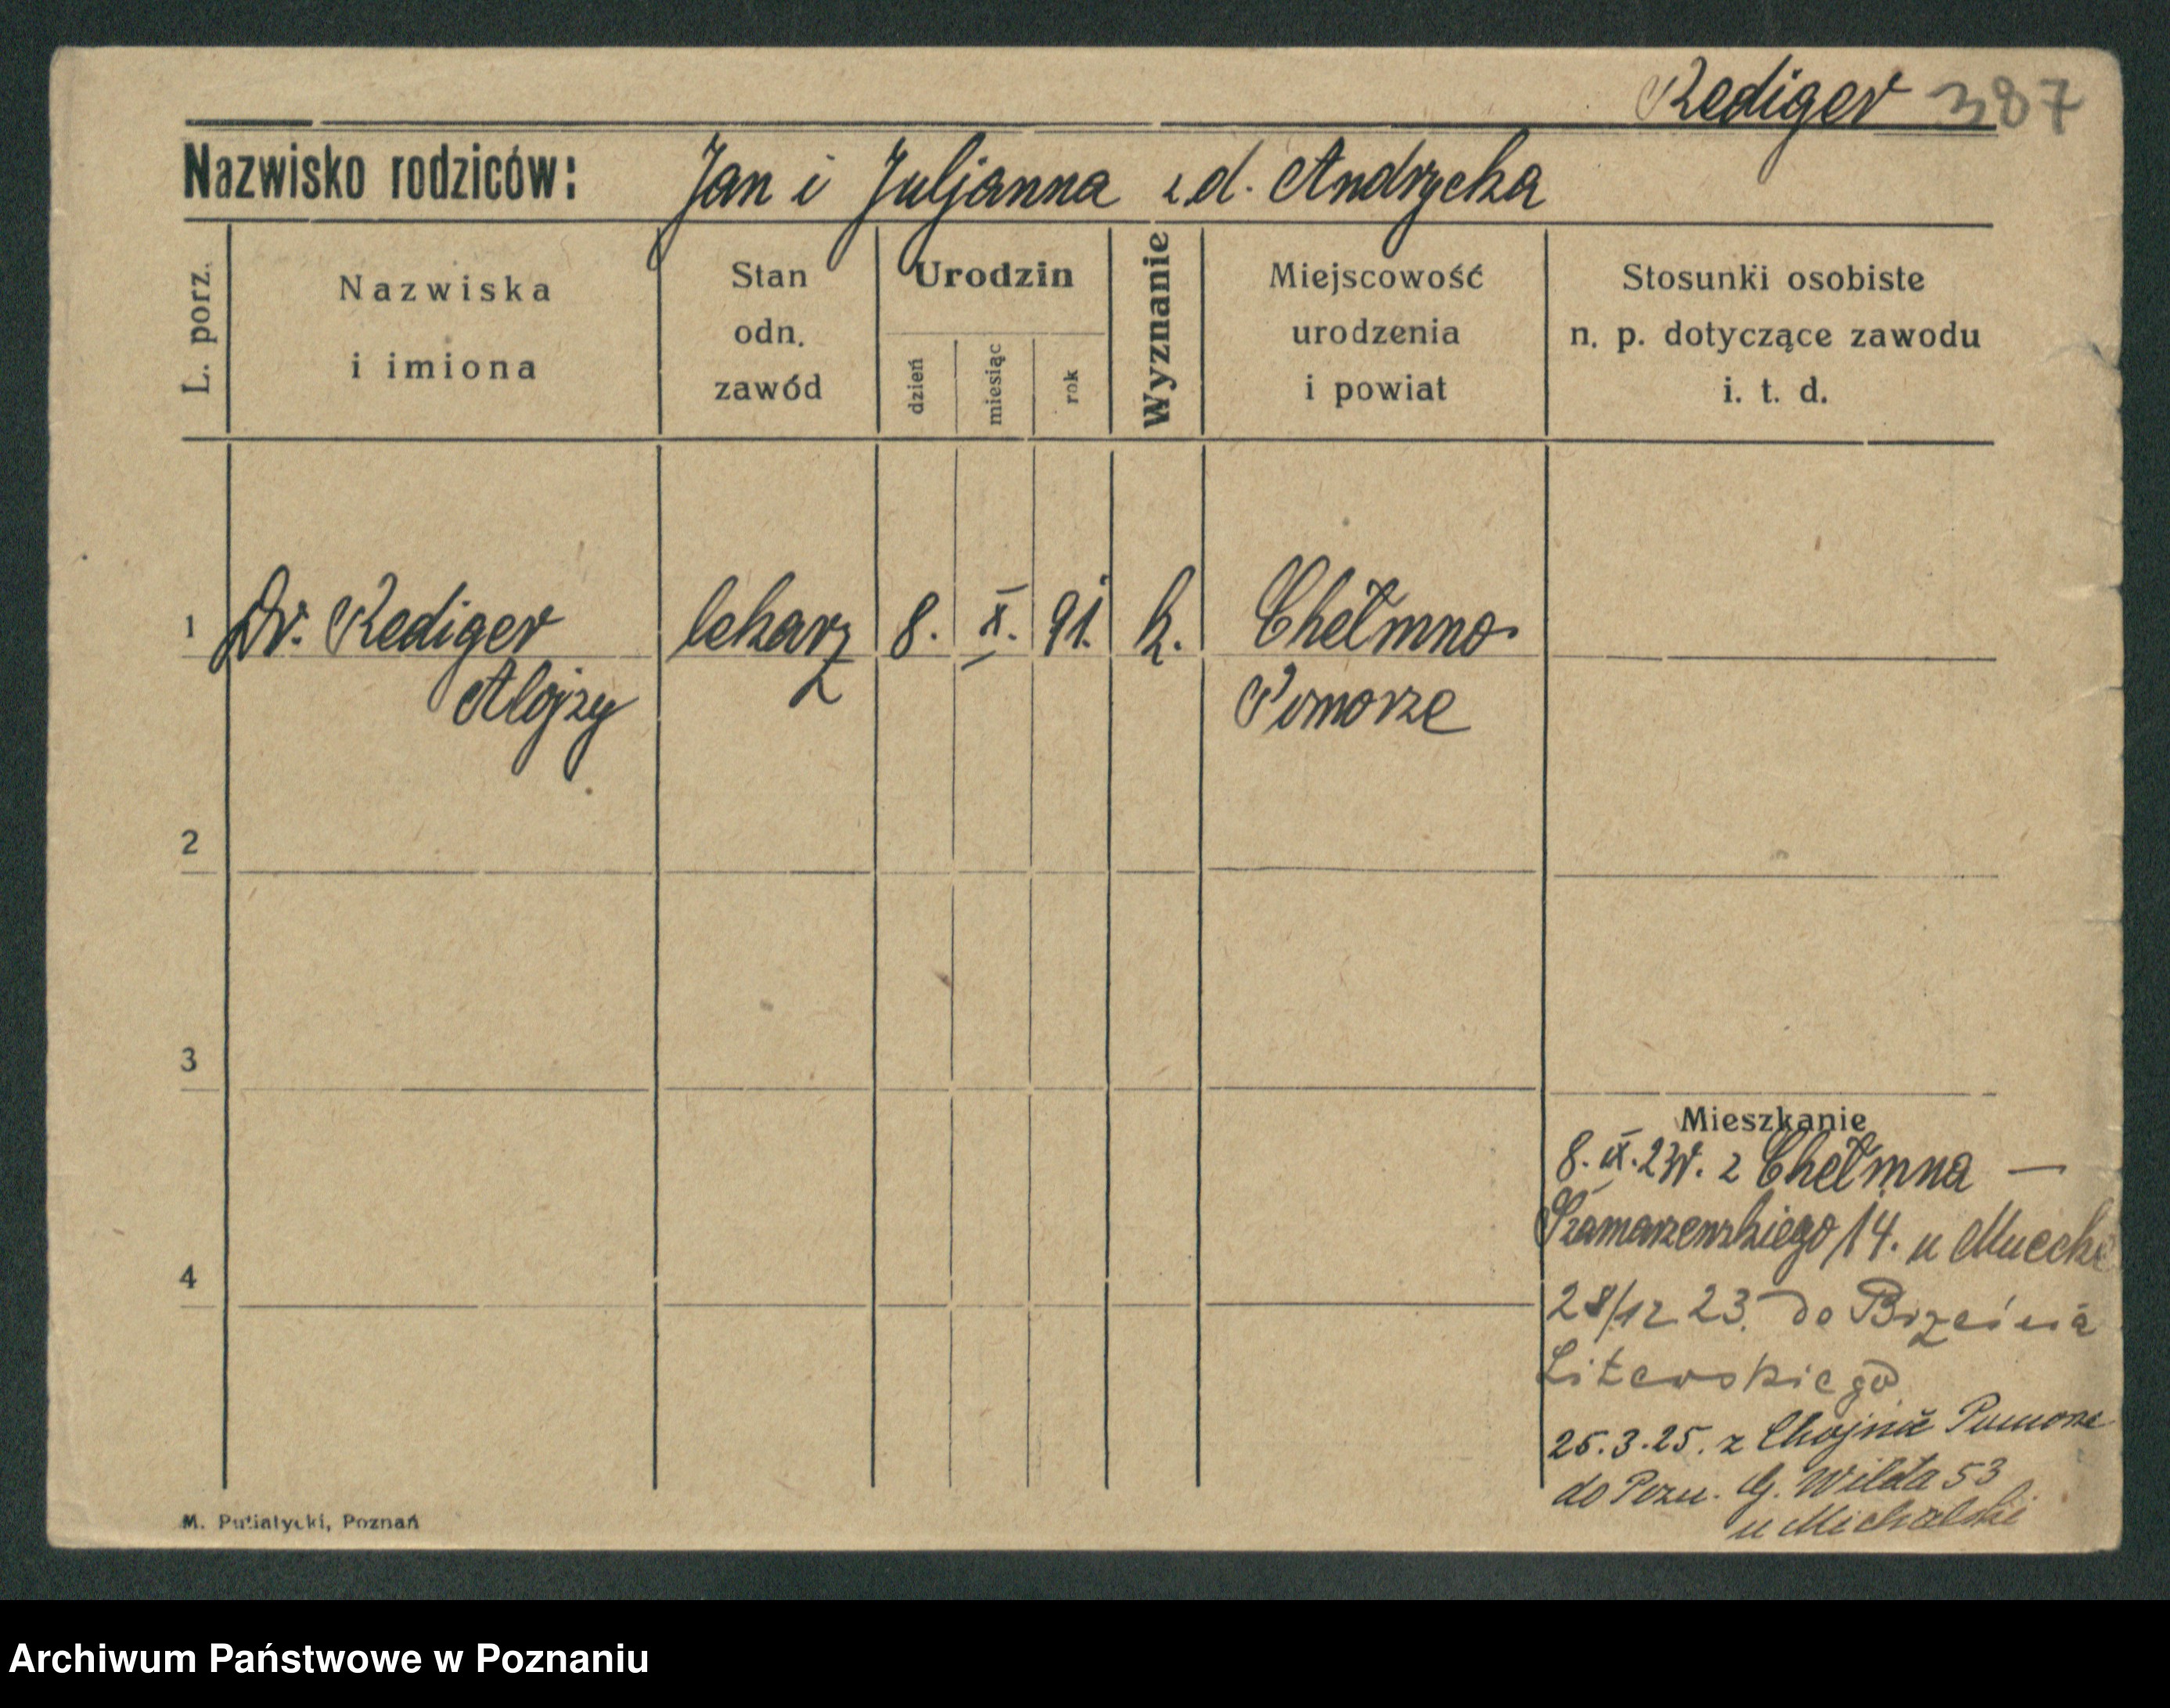 Rediger 387
Nazwisko rodziców: Jan i Juljanna z d. Andrycka
L. porz.
Nazwiska
i imiona
Stan
odn.
zawód
Urodzin
dzień
miesiąc
rok
Wyznanie
Miejscowość
urodzenia
i powiat
Stosunki osobiste
n. p. dotyczące zawodu
i. t. d.
1 Dr. Rediger lekarz 8. X. 91. k. Chełmno
Alojzy Pomorze
2
3
Mieszkanie
8. IX. 23r. z Chełmna —
Szamarzewskiego 14. u
4
28/12 23. do Brześcia
Litewskiego
25.3.25. z Pomorze
do Pozn. G. Wilda 53
u Michalski
M. Putiatycki, Poznań
Archiwum Państwowe w Poznaniu